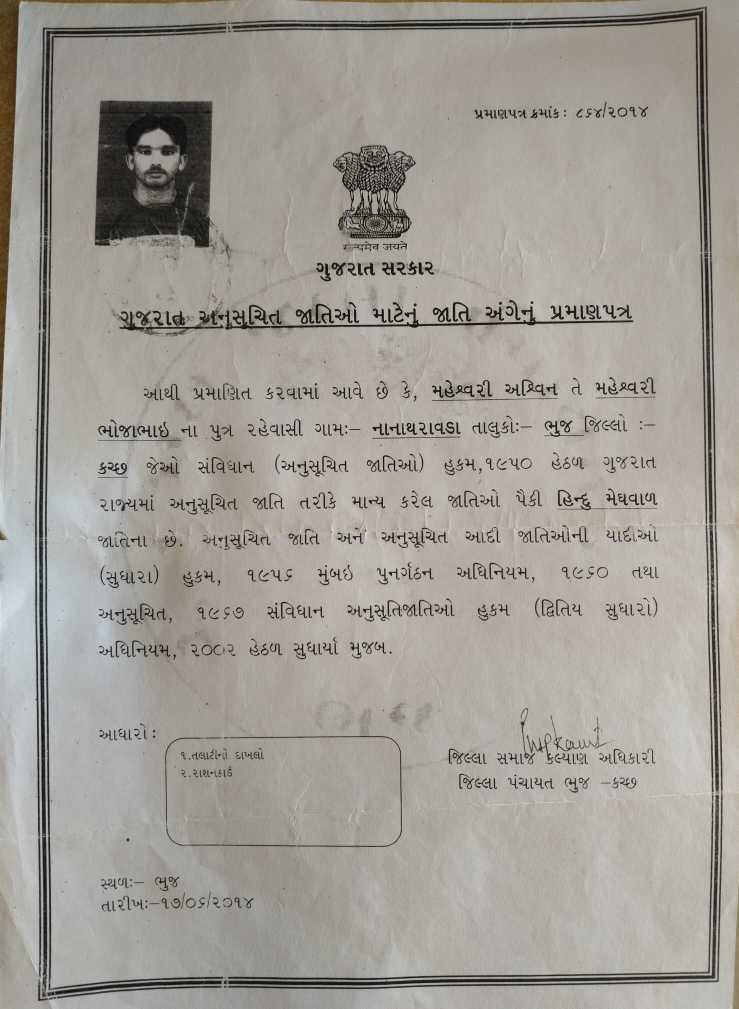 પ્રમાણપત્ર ક્રમાંક: ૮૬૪/૨૦૧૪
सत्यमेव जयते
ગુજરાત સરકાર
ગુજરાત અનુસૂચિત જાતિઓ માટેનું જાતિ અંગેનું પ્રમાણપત્ર
આથી પ્રમાણિત કરવામાં આવે છે કે, મહેશ્વરી અશ્વિન તે મહેશ્વરી
ભોજાભાઇ ના પુત્ર રહેવાસી ગામઃ– નાનાથરાવડા તાલુકોઃ– ભુજ જિલ્લો :–
કચ્છ જેઓ સંવિધાન (અનુસૂચિત જાતિઓ) હુકમ,૧૯૫૦ હેઠળ ગુજરાત
રાજ્યમાં અનુસૂચિત જાતિ તરીકે માન્ય કરેલ જાતિઓ પૈકી હિન્દુ મેઘવાળ
જાતિના છે. અનુસૂચિત જાતિ અને અનુસૂચિત આદી જાતિઓની યાદીઓ
(સુધારા) હુકમ, ૧૯૫૬ મુંબઇ પુનર્ગઠન અધિનિયમ, ૧૯૬૦ તથા
અનુસૂચિત, ૧૯૬૭ સંવિધાન અનુસૂતિજાતિઓ હુકમ (દ્વિતિય સુધારો)
અધિનિયમ, ૨૦૦૨ હેઠળ સુધાર્યા મુજબ.
આધારો :
૧.તલાટીનો દાખલો
૨.રાશનકાર્ડ
જિલ્લા સમાજ કલ્યાણ અધિકારી
જિલ્લા પંચાયત ભુજ –કચ્છ
સ્થળઃ– ભુજ
તારીખઃ–૧૭/૦૬/૨૦૧૪